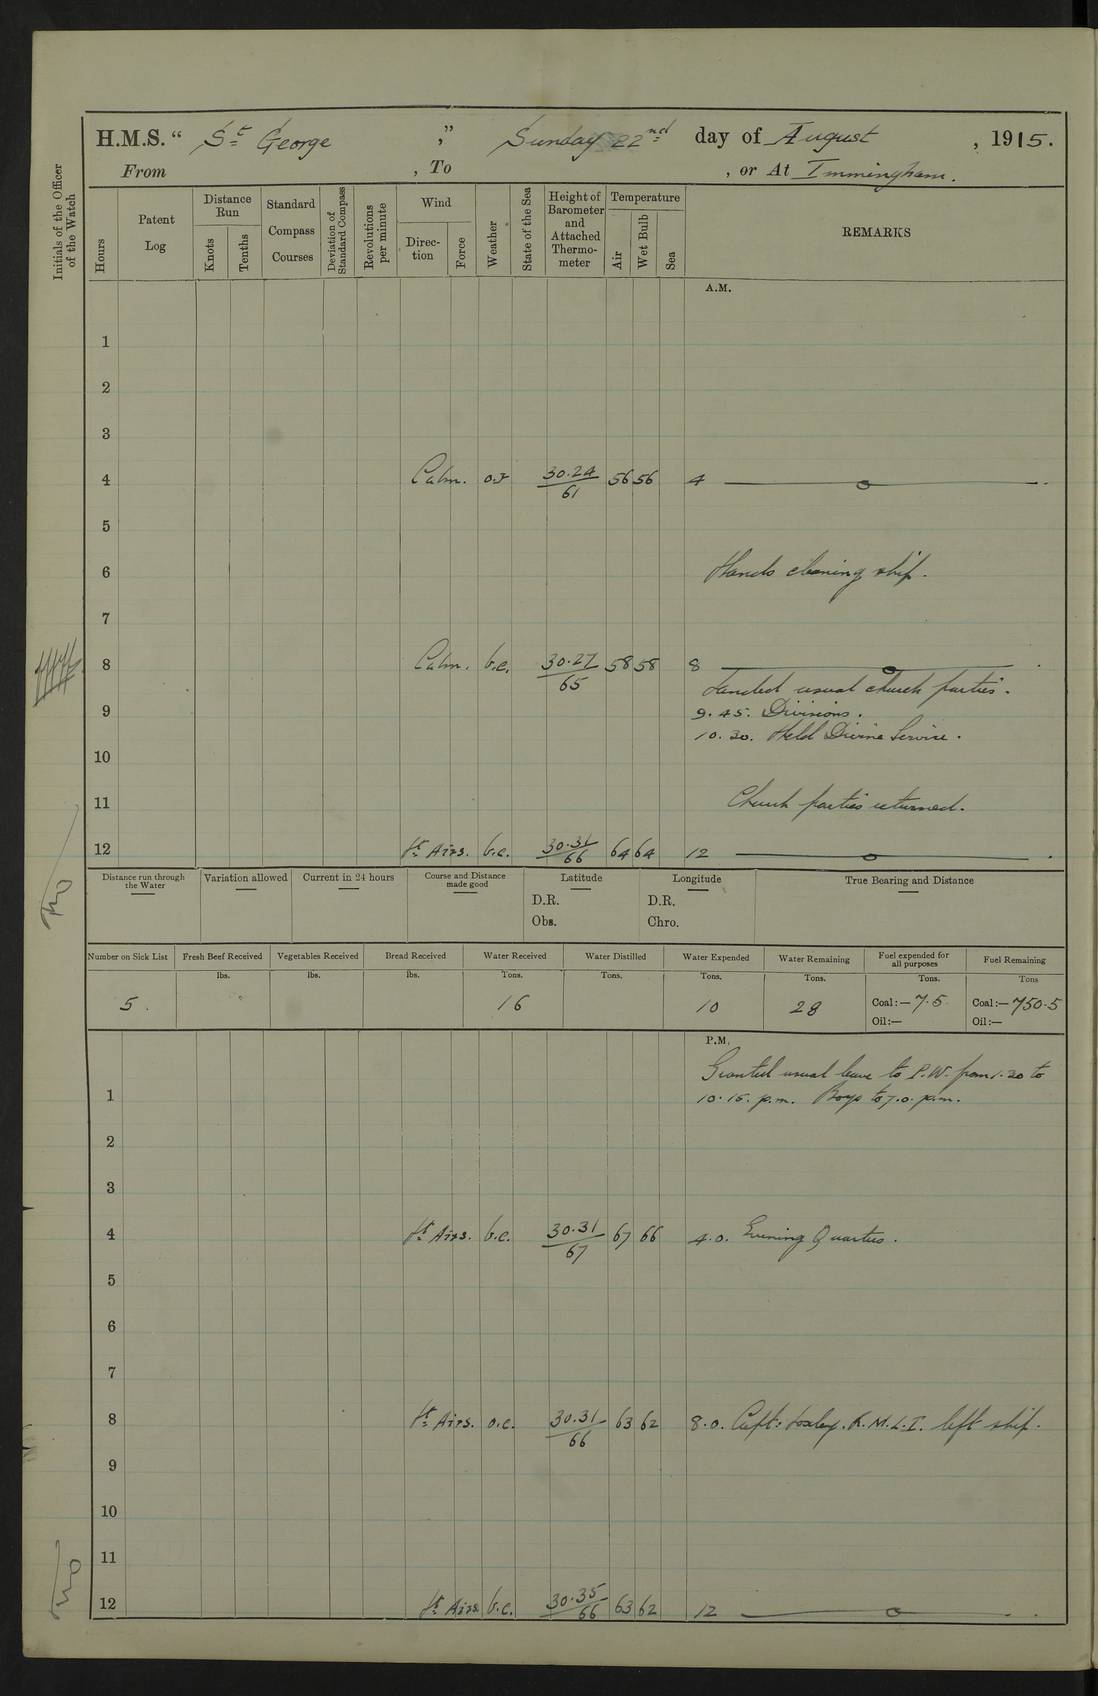 H.M.S. “ St George ” , Sunday 22nd day of August , 1915.
From , To , or At Immingham.
Initials of the Officer of the Watch
Hours
Patent Log
Distance Run
Knots
Tenths
Standard Compass Courses
Deviation of Standard Compass
Revolutions per minute
Wind
Direction
Force
Weather
State of the Sea
Height of Barometer and Attached Thermometer
Temperature
Air
Wet Bulb
Sea
REMARKS
A.M.
1
2
3
4 Calm. 30.24 61 56 56 4
5
6 Hands cleaning ship.
7
8 Calm. b.c. 30.27 65 58 58 8
Landed usual church parties.
9 9.45. Divisions.
10.30. Held Divine Service.
10
11 Church parties returned.
12 Lt Airs. b.c. 30.31 66 64 64 12
Distance run through the Water
Variation allowed
Current in 24 hours
Course and Distance made good
Latitude
D.R.
Obs.
Longitude
D.R.
Chro.
True Bearing and Distance
Number on Sick List
Fresh Beef Received
Vegetables Received
Bread Received
Water Received
Water Distilled
Water Expended
Water Remaining
Fuel expended for all purposes
Fuel Remaining
lbs. lbs. lbs. Tons. Tons. Tons. Tons. Tons. Tons
5. 16 10 28 Coal:— 7.5 Coal:— 750.5
Oil:— Oil:—
P.M.
Granted usual leave to P.W. from 1.30 to
1 10.15. p.m. Boys to 7.0. p.m.
2
3
4 Lt Airs. b.c. 30.31 67 67 66 4.0. Evening Quarters.
5
6
7
8 Lt Airs. o.c. 30.31 66 63 62 8.0. Capt: Loxley. R.M.L.I. left ship.
9
10
11
12 Lt Airs b.c. 30.35 66 63 62 12